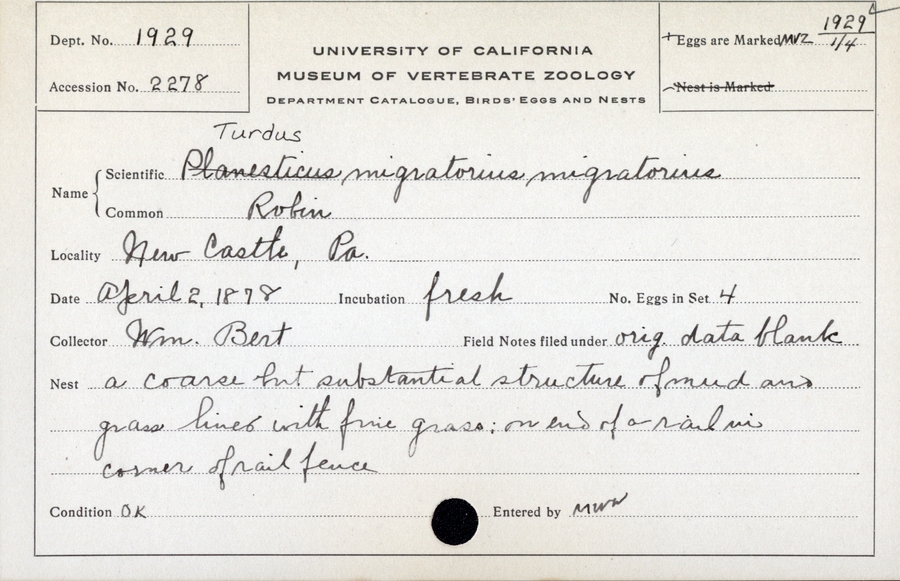 Dept. No. 1929
Accession No. 2278
UNIVERSITY OF CALIFORNIA
MUSEUM OF VERTEBRATE ZOOLOGY
DEPARTMENT CATALOGUE, BIRDS' EGGS AND NESTS
+Eggs are Marked MVZ 1929
1/4
Nest is Marked
Turdus
Name
Scientific Planesticus migratorius migratorius
Common Robin
Locality New Castle, Pa.
Date April 2, 1878 Incubation fresh No. Eggs in Set 4
Collector Wm. Bert Field Notes filed under orig. data blank
Nest a coarse but substantial structure of mud and
grass lined with fine grass; on end of a rail in
corner of rail fence
Condition OK Entered by